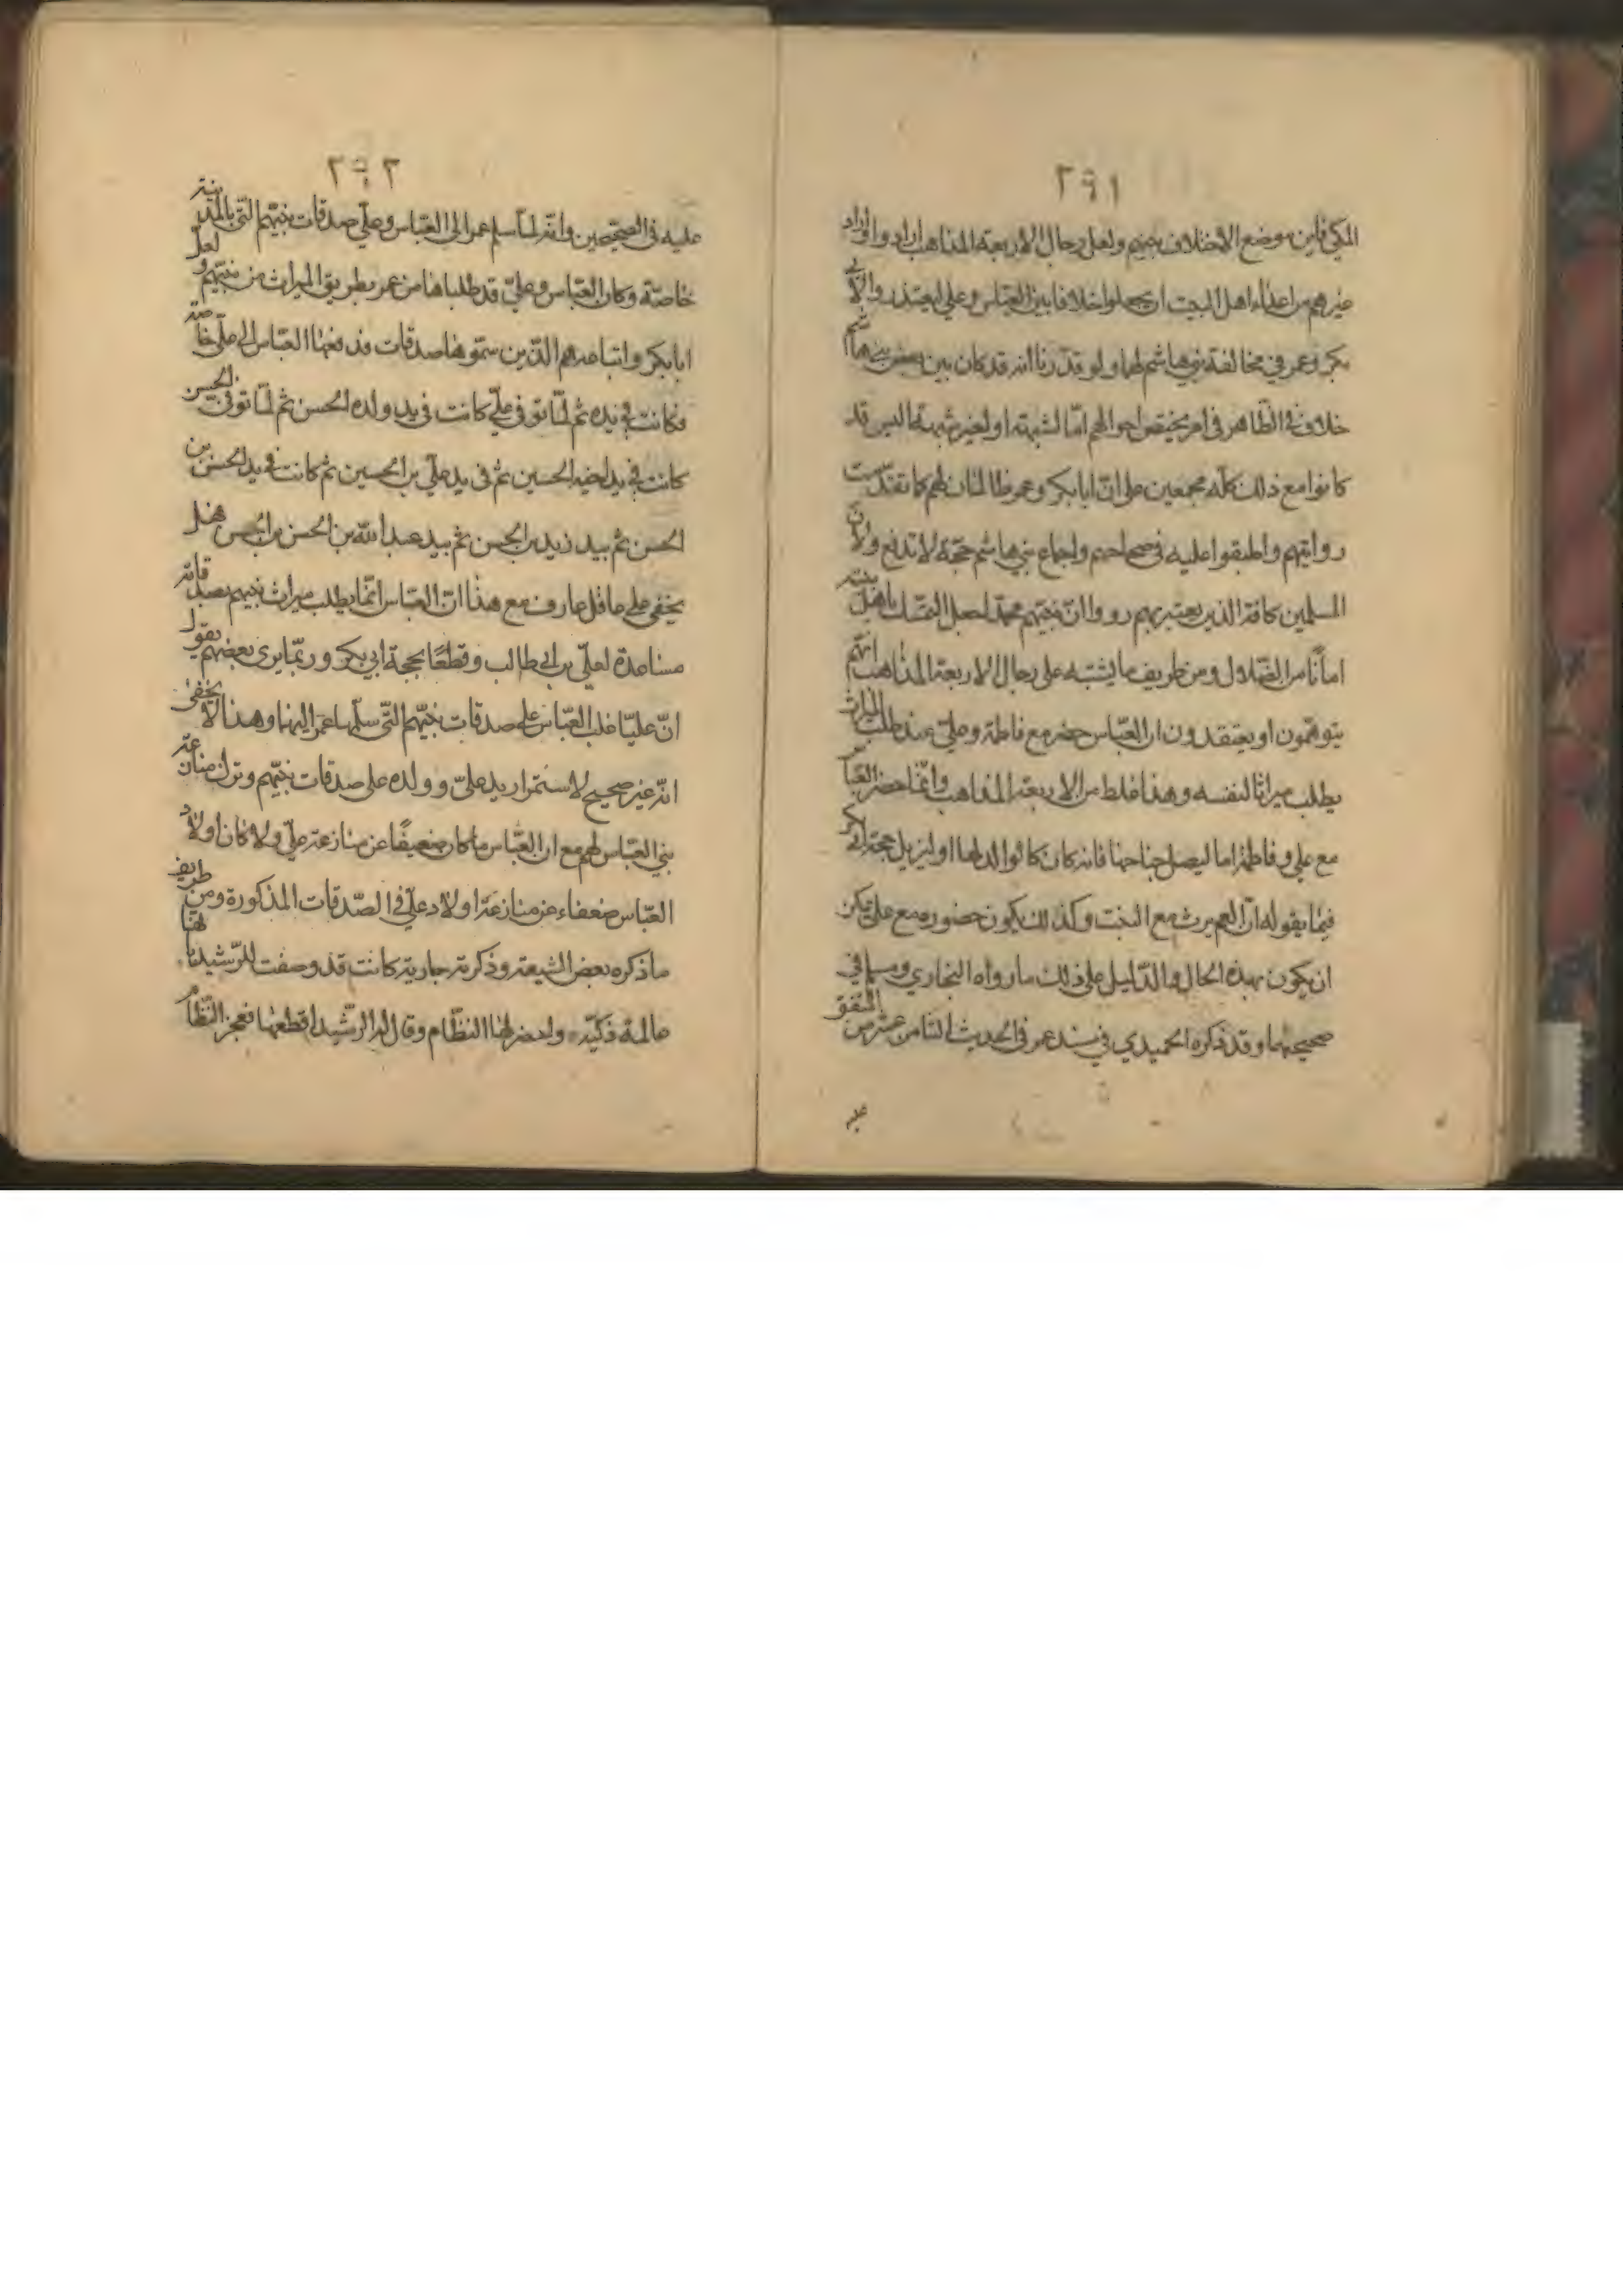 ٢٩١
المكي فاين موضع الاختلاف بينهم ولعل رجال الاربعة المذاهب ارادوا واراد
غيرهم من اعداء اهل البيت ان يجعلوا خلافا بين العباس وعلي ليعتذروا لابي
بكر وعمر في مخالفة بني هاشم لهما ولو قدّرنا انه قد كان بين بعض بني هاشم
خلاف في الظاهر في امر يختص احوالهم امّا لشبهة او لغير شبهة اليس قد
كانوا مع ذلك كله مجمعين على انّ ابا بكر وعمر ظالمان لهم كما تقدّمت
روايتهم واطبقوا عليه في صحاحهم واجماع بني هاشم حجّة لا تدفع ولانّ
المسلمين كافة الذين يعتبر بهم رووا انّ نبيّهم محمّد جعل التمسّك باهل بيته
امانًا من الضّلال ومن طريف ما يشتبه على رجال الاربعة المذاهب انّهم
يتوهّمون او يعتقدون ان العبّاس حضر مع فاطمة وعليّ عند طلب الميراث
يطلب ميراثا لنفسه وهذا غلط من الاربعة المذاهب وانّما حضر العبّاس
مع علي وفاطمة اما ليصل جناحها فانه كان كالوالد لها او ليزيل حجة ابي بكر
فيما يقوله انّ العم يرث مع البنت وكذلك يكون حضوره مع علي يمكن
ان يكون بهذه الحال والدّليل على ذلك ما رواه البخاري ومسلم في
صحيحيهما وقد ذكره الحميدي في مسند عمر في الحديث الثامن عشر من المتفق
عليه
٢٩٢
عليه في الصحيحين وانّه لمّا سلم عمر الى العبّاس وعليّ صدقات نبيّهم التّي بالمدينة
خاصّة وكان العبّاس وعليّ قد طلباها من عمر بطريق الميراث من نبيّهم ولعلّ
ابا بكر واتباعه هم الذّين سمّوها صدقات فدفعها العبّاس الى عليّ خاصّة
فكانت في يده ثم لمّا توفي عليّ كانت في يد ولده الحسن ثم لمّا توفّى الحسن
كانت في يد اخيه الحسين ثم في يد عليّ بن الحسين ثم كانت في يد الحسن بن
الحسن ثم بيد زيد بن الحسن ثم بيد عبد الله بن الحسن بن الحسن فهل
يخفى على عاقل عارف مع هذا انّ العبّاس انّما يطلب ميراث نبيّهم بصدقاته
مساعدة لعليّ بن ابي طالب وقطعًا بحجة ابي بكر وربّما يرى بعضهم يقول
انّ عليّا غلب العبّاس على صدقات نبيّهم التّي سلّمها عمر اليهما وهذا لا يخفى
انّه غير صحيح لاستمرار يد عليّ وولده على صدقات نبيّهم وترك منازعة
بني العبّاس لهم مع ان العبّاس ما كان ضعيفًا عن منازعة عليّ ولا كان اولاد
العبّاس ضعفاء عن منازعة اولاد عليّ في الصّدقات المذكورة ومن طريف
ما ذكره بعض الشيعة وذكرته جارية كانت قد وصفت للرّشيد بانّها
عالمة ذكيّة واحضر لها النظّام وقال له الرشيد اقطعها فعجز النظّام